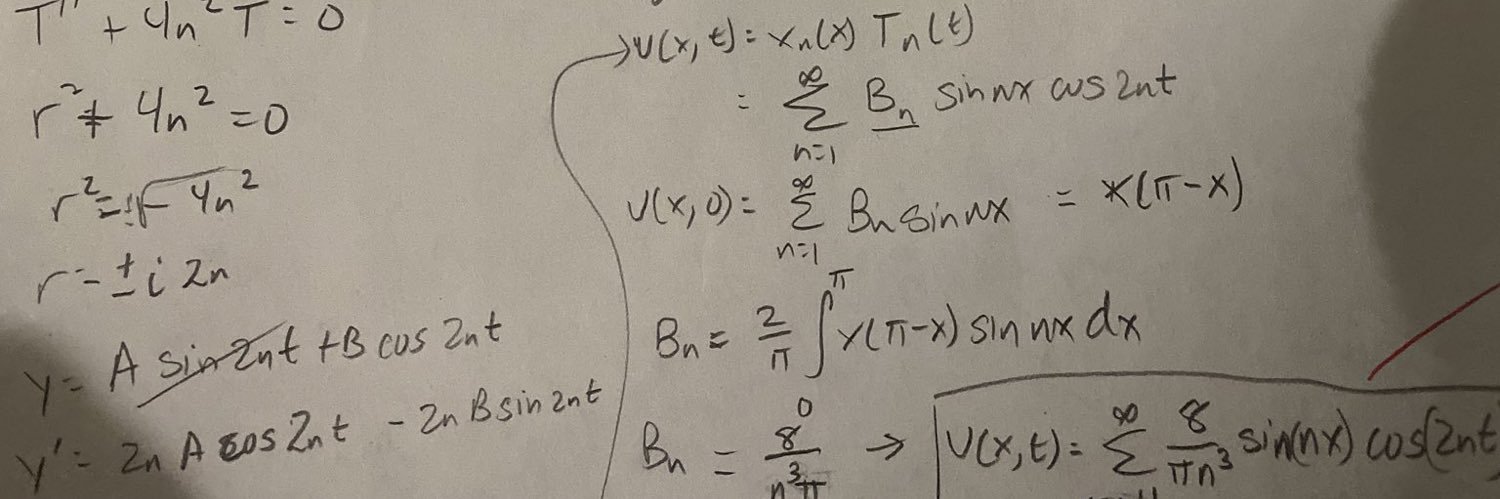 T'' + 4n²T = 0
r² + 4n² = 0
r² = ±√-4n²
r = ± i 2n
y = A sin 2nt + B cos 2nt
y' = 2n A cos 2nt - 2n B sin 2nt
U(x, t) = Xn(x) Tn(t)
= ∑_{n=1}^{∞} Bn sin nx cos 2nt
U(x, 0) = ∑_{n=1}^{∞} Bn sin nx = x(π-x)
Bn = 2/π ∫_0^π x(π-x) sin nx dx
Bn = 8/(n³π) → U(x,t) = ∑^{∞} 8/(πn³) sin(nx) cos(2nt